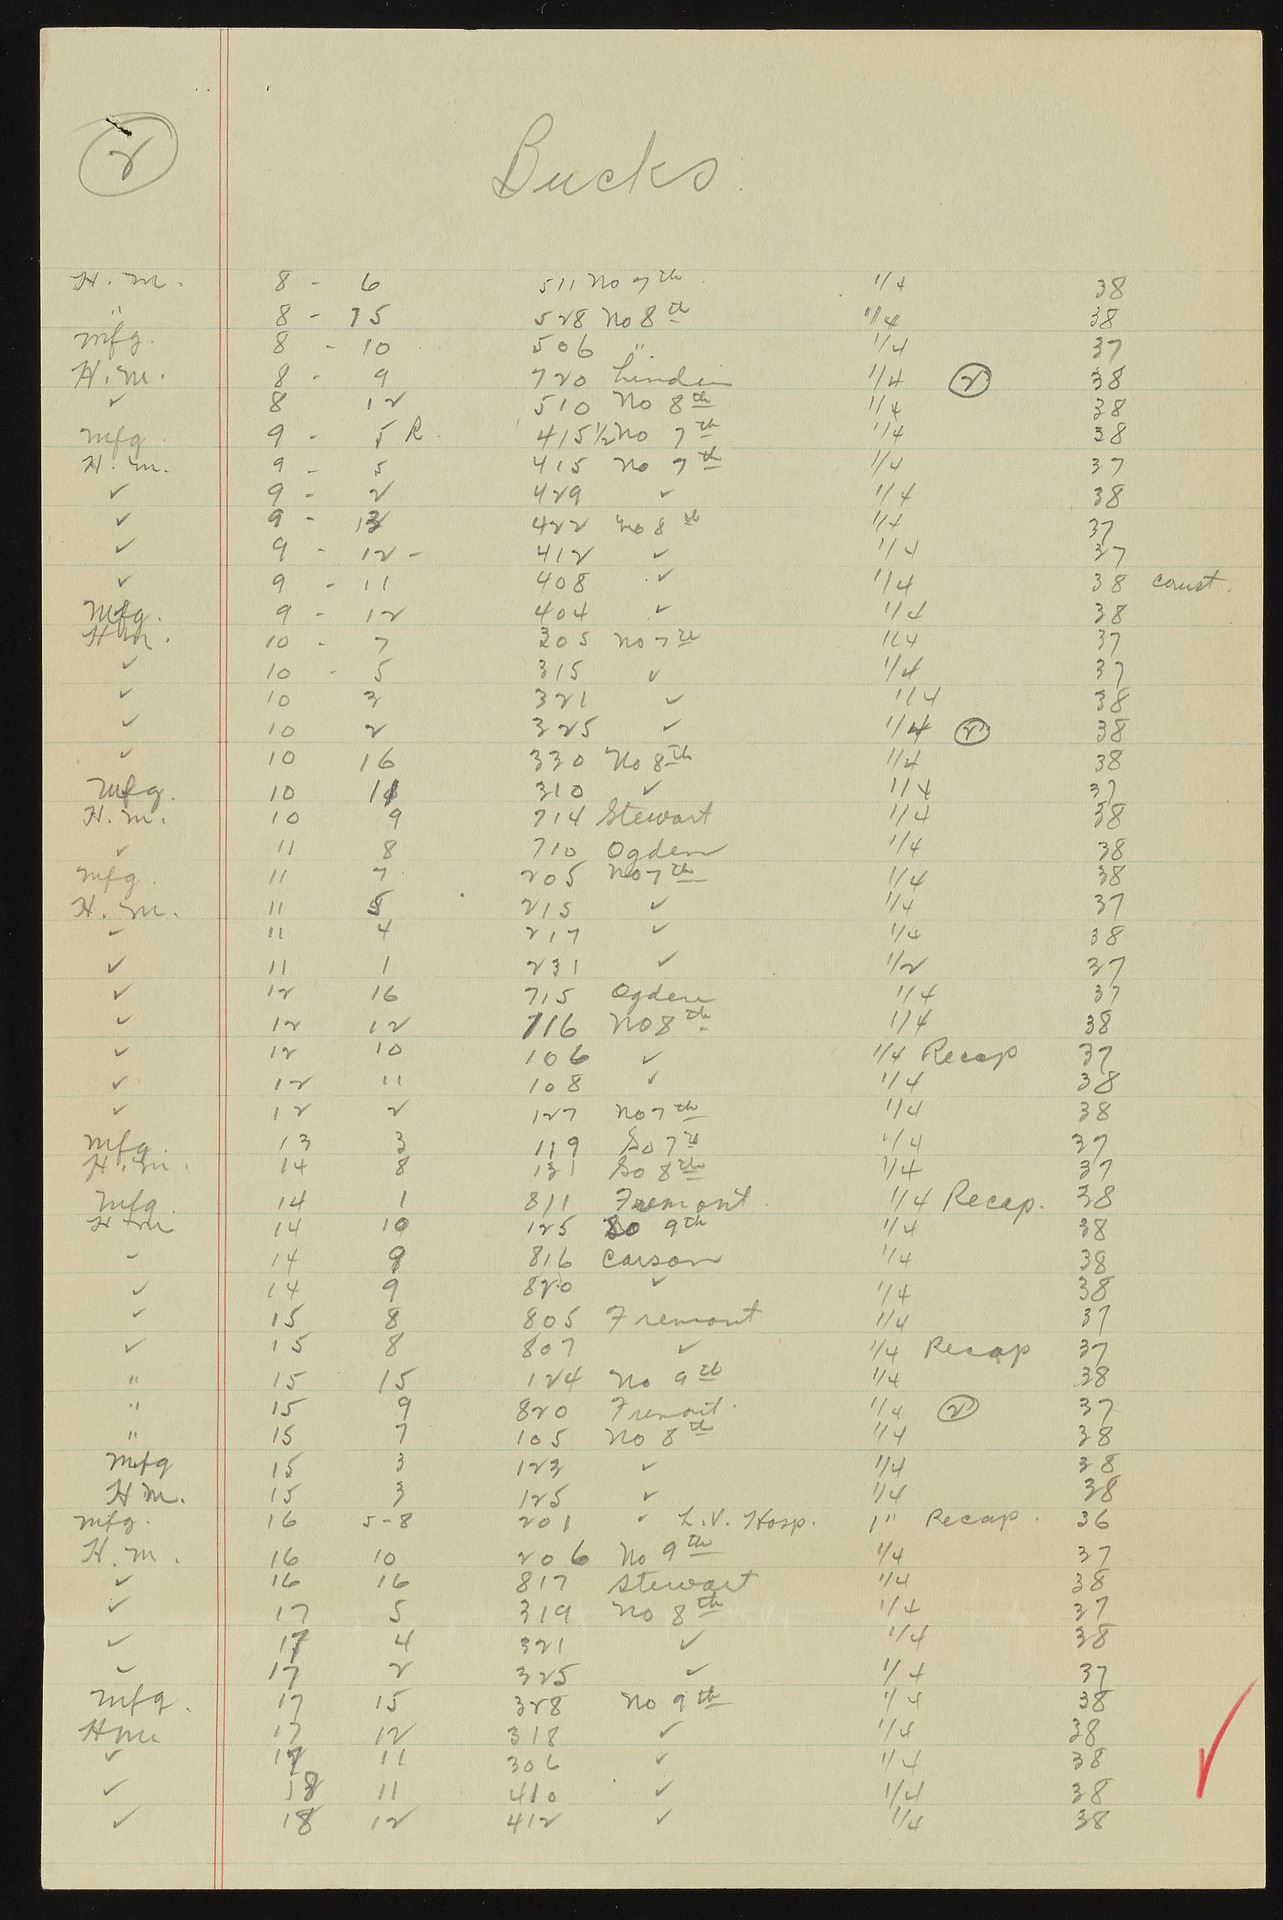 2
Bucks
H. m. 8 - 6 511 No 7th 1/4 38
" 8 - 15 528 No 8th 1/4 38
mfg. 8 - 10 506 " 1/4 37
H. m. 8 - 9 720 Linden 1/4 2 38
✓ 8 12 510 No 8th 1/4 38
mfg 9 - 5 R 415½ No 7th 1/4 38
H. m. 9 - 5 415 No 7th 1/4 37
✓ 9 - 2 429 ✓ 1/4 38
✓ 9 - 422 No 8th 1/4 37
✓ 9 - 12 - 412 ✓ 1/4 37
✓ 9 - 11 408 ✓ 1/4 38 const.
Mfg. 9 - 12 404 ✓ 1/4 38
H m. 10 - 7 305 No 7th 1/4 37
✓ 10 - 5 315 ✓ 1/4 37
✓ 10 3 321 ✓ 1/4 38
✓ 10 2 325 ✓ 1/4 2 38
✓ 10 16 330 No 8th 1/4 38
Mfg. 10 11 310 ✓ 1/4 37
H. m. 10 9 714 Stewart 1/4 38
✓ 11 8 710 Ogden 1/4 38
mfg. 11 7 205 No 7th 1/4 38
H. m. 11 5 215 ✓ 1/4 37
✓ 11 4 217 ✓ 1/4 38
✓ 11 1 231 ✓ 1/2 37
✓ 12 16 715 Ogden 1/4 37
✓ 12 12 116 No 8th 1/4 38
✓ 12 10 106 ✓ 1/4 Recap 37
✓ 12 11 108 ✓ 1/4 38
✓ 12 2 127 No 7th 1/4 38
mfg. 13 3 119 So 7th 1/4 37
H. m. 14 8 131 So 8th 1/4 37
mfg 14 1 811 Fremont 1/4 Recap. 38
H m 14 10 125 So 9th 1/4 38
✓ 14 9 816 Carson 1/4 38
✓ 14 9 820 ✓ 1/4 38
✓ 15 8 805 Fremont 1/4 37
✓ 15 8 807 ✓ 1/4 Recap 37
" 15 15 124 No 9th 1/4 38
" 15 9 820 Fremont 1/4 2 37
" 15 7 105 No 8th 1/4 38
Mfg 15 3 123 ✓ 1/4 38
H m. 15 3 125 ✓ 1/4 38
mfg. 16 5-8 201 ✓ L.V. Hosp. 1" Recap. 36
H. m. 16 10 206 No 9th 1/4 37
✓ 16 16 817 Stewart 1/4 38
✓ 17 5 319 No 8th 1/4 37
✓ 17 4 321 ✓ 1/4 38
✓ 17 2 325 ✓ 1/4 37
mfg. 17 15 328 No 9th 1/4 38
H m. 17 12 318 ✓ 38
✓ 17 11 306 ✓ 1/4 38
✓ 18 11 410 ✓ 1/4 38
✓ 18 12 412 ✓ 1/4 38